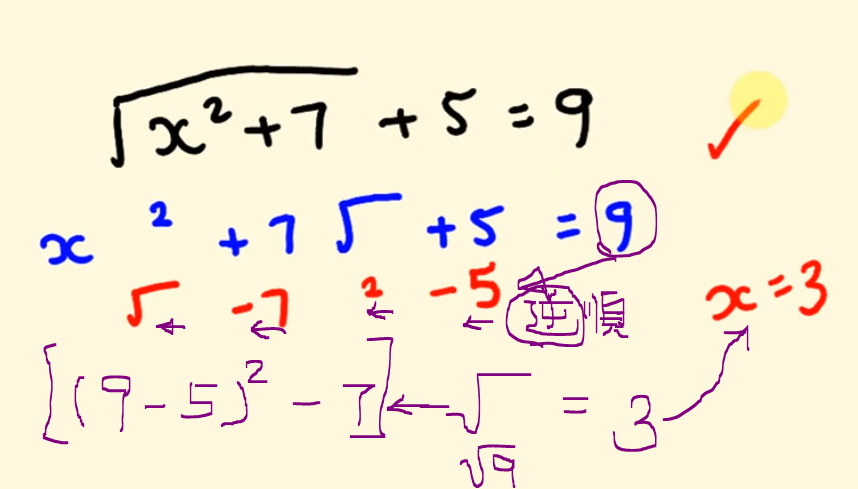 √(x²+7) + 5 = 9
x ² +7 √ +5 = 9
√ -7 ² -5 逆順
x = 3
[(9-5)² - 7] ← √ = 3
√9